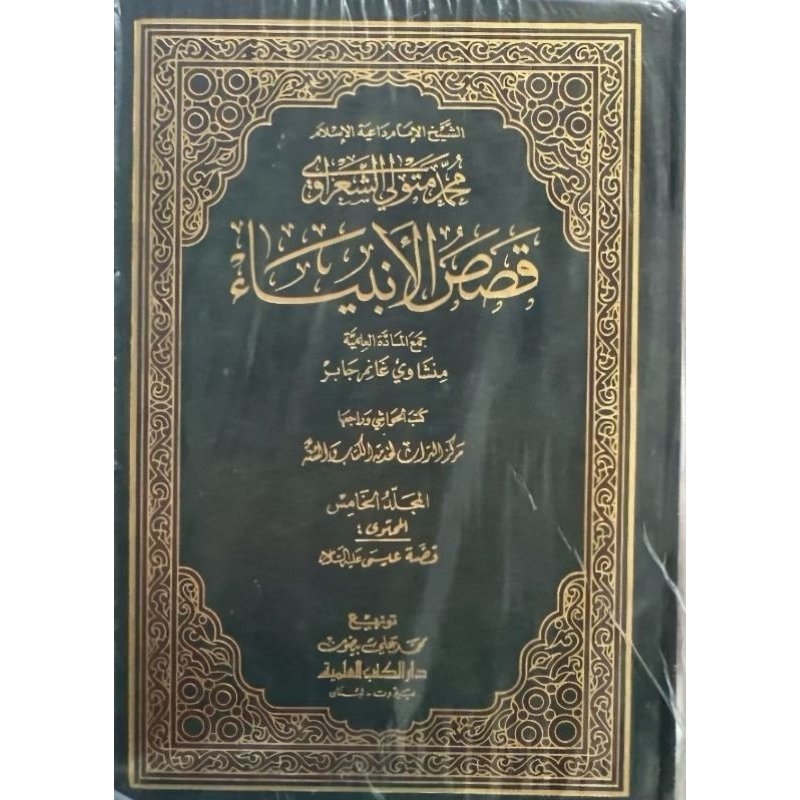 الشيخ الإمام داعية الإسلام
محمد متولي الشعراوي
قَصَصُ الأنبيَاء
جمع المادة العلمية
منشاوي غانم جابر
كتب الحواشي وراجعها
مركز التراث لخدمة الكتاب والسنة
المجلد الخامس
المحتوى :
قصة عيسى عليه السلام
توزيع
محمد علي بيضون
دار الكتب العلمية
بيروت - لبنان